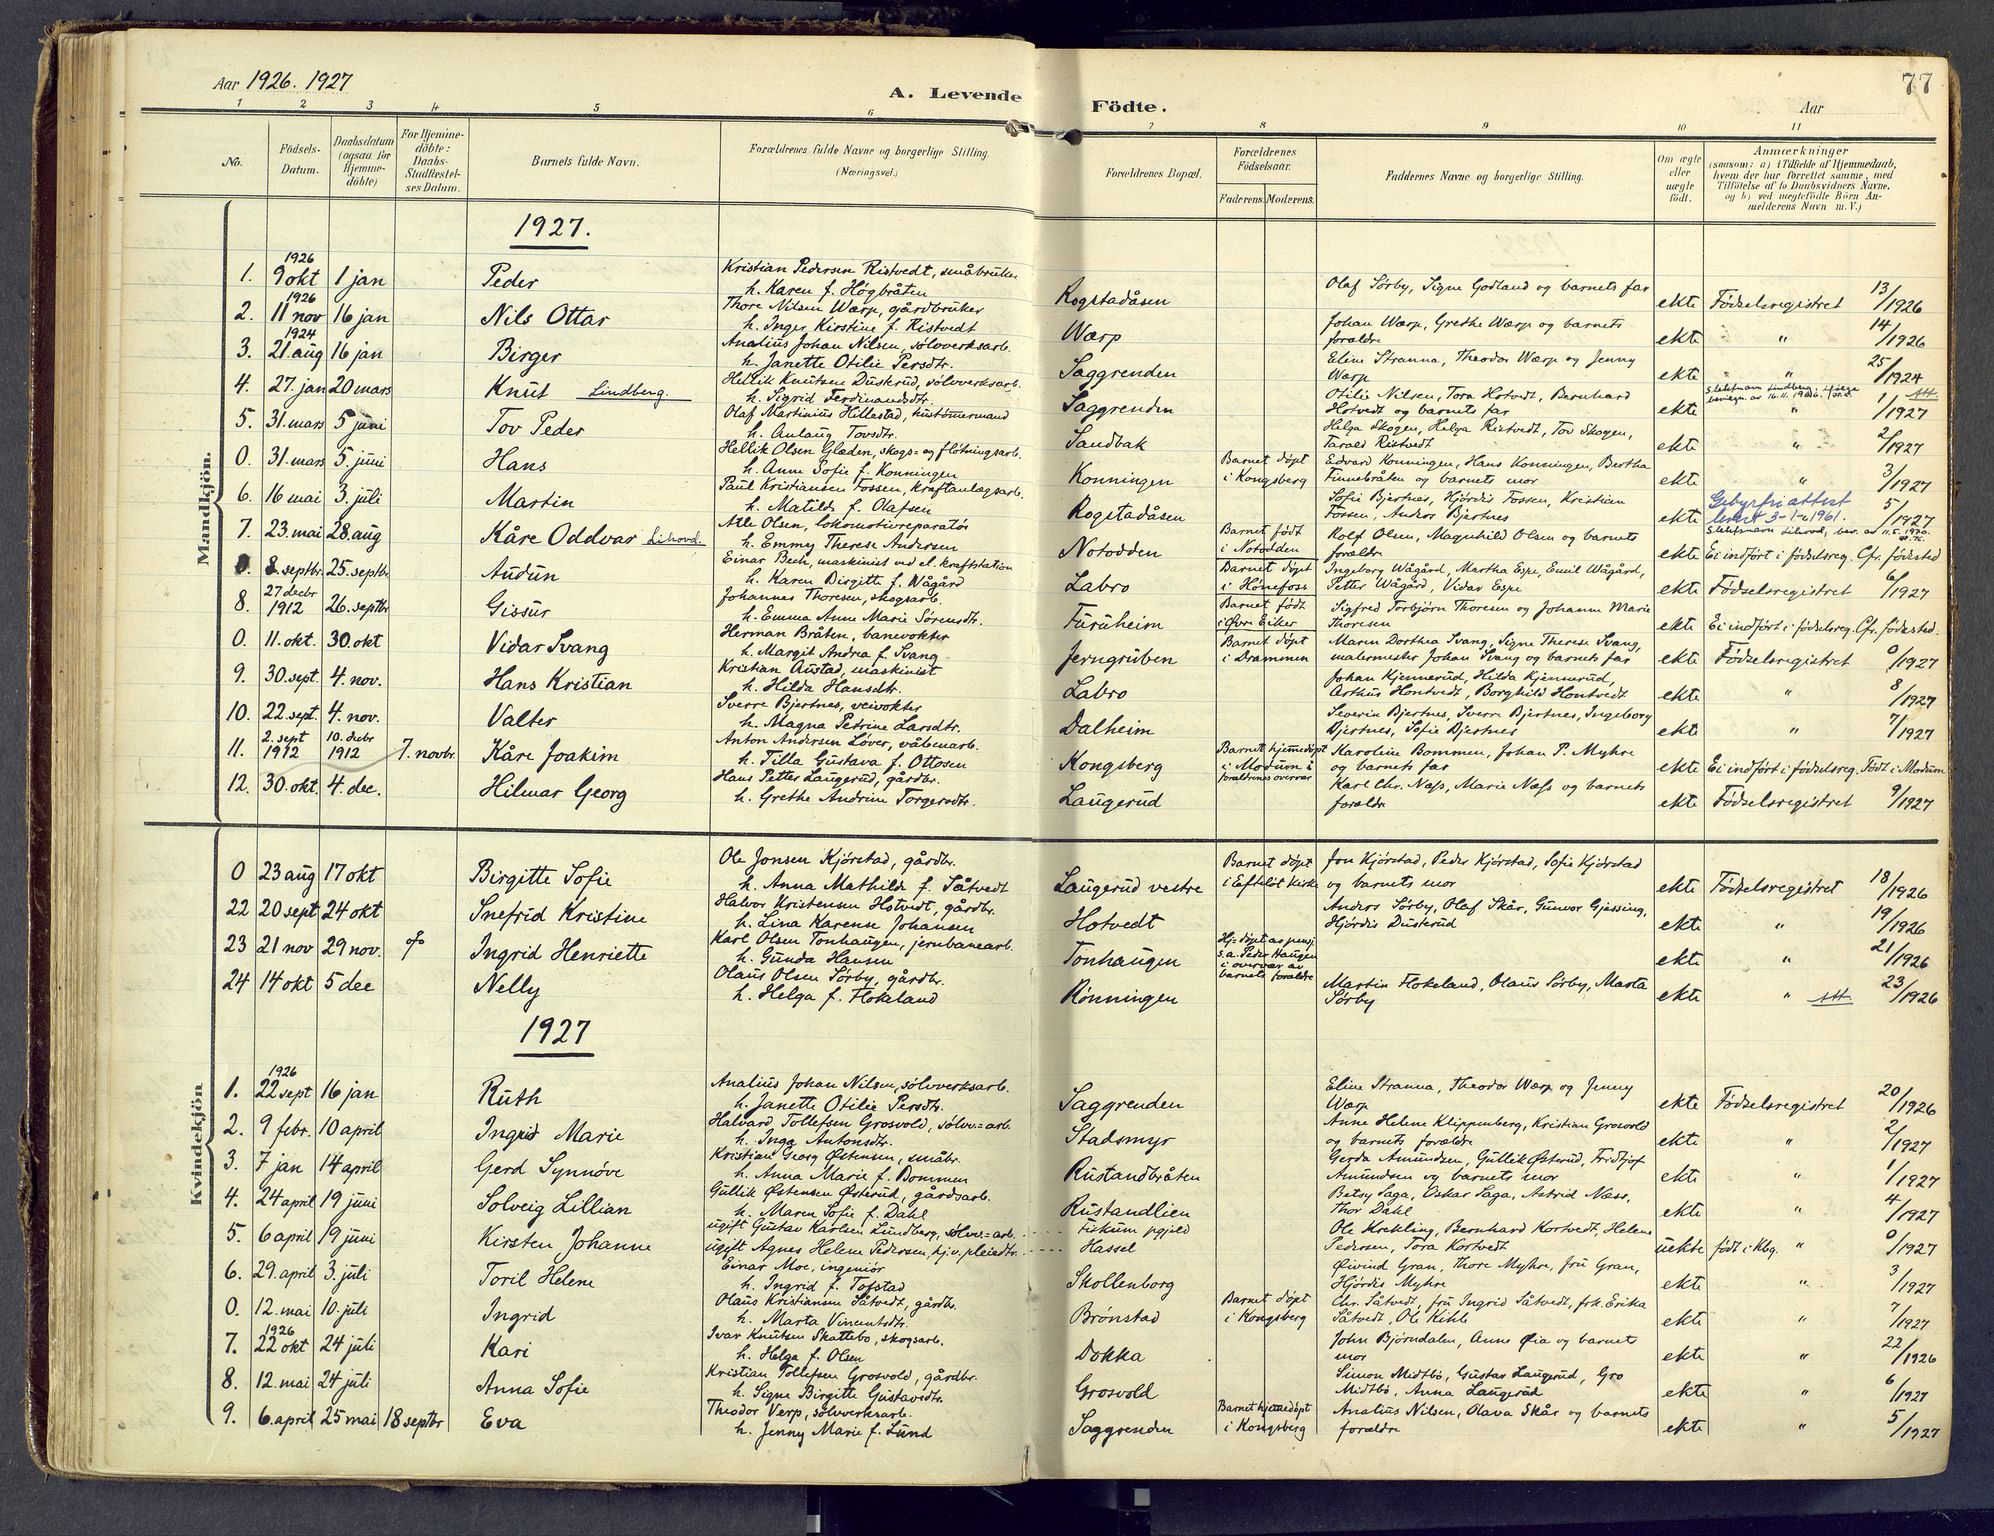 Aar 1926. 1927
A. Levende Födte.
Aar
77
1 2 3 4 5 6 7 8 9 10 11
No.
Födsels-Datum.
Daabsdatum (ogsaa for Hjemmedöbte)
For Hjemmedöbte: Daabs-Stadfæstelses Datum.
Barnets fulde Navn.
Forældrenes fulde Navne og borgerlige Stilling. (Næringsvei.)
Forældrenes Bopæl.
Forældrenes Födselsaar.
Faderens. Moderens.
Faddernes Navne og borgerlige Stilling.
Om ægte eller uægte født.
Anmærkninger (saasom: a) i Tilfælde af Hjemmedaab, hvem der har forrettet samme, med Tilföielse af to Daabsvidners Navne. og b) ved uægtefödte Börn Anmelderens Navn m. V.)
Mandkjön.
1927.
1. 1926 9 okt 1 jan Peder Kristian Pedersen Ristvedt, småbruker h. Karen f. Högbråten Rogstadåsen Olaf Sørby, Signe Godland og barnets far ekte Födselsregistret 13/1926
2. 1926 11 nov 16 jan Nils Ottar Thore Nilsen Wærp, gårdbruker h. Inger Kirstine f. Ristvedt Wærp Johan Wærp, Grethe Wærp og barnets forældre ekte " 14/1926
3. 1924 21 aug 16 jan Birger Analius Johan Nilsen, sølvverksarb. h. Janette Otilie Persdtr. Saggrenden Eline Stranna, Theodor Wærp og Jenny Wærp ekte " 25/1924
4. 27 jan 20 mars Knut Lindberg. Hellik Knutsen Duskrud, sølvverksarb. h. Sigrid Ferdinandsdtr. Saggrenden Otilie Nilsen, Tora Hotvedt, Bernhard Hotvedt og barnets far ekte Slektsnavn Lindberg, ifølge bevilgn. av 16.11. " 1/1927
5. 31. mars 5 juni Tov Peder Olaf Martinius Hillestad, hustömermand h. Anlaug Tovsdtr. Sandbak Helga Skogen, Helga Ristvedt, Tov Skogen, Tarald Ristvedt ekte " 2/1927
0. 31. mars 5. juni Hans Hellik Olsen Glæden, skogs= og fløtningsarb. h. Anne Sofie f. Konningen Konningen Barnet døpt i Kongsberg Edvard Konningen, Hans Konningen, Bertha Finnebråten og barnets mor ekte " 3/1927
6. 16 mai 3. juli Martin Paul Kristiansen Fossen, kraftanlægsarb. h. Matilde f. Olafsen Rogstadåsen Sofie Bjertnes, Hjördis Fossen, Kristian Fossen, Andor Bjertnes ekte Gebyrfri attest 3-1-1961. 5/1927
7. 23. mai 28. aug Kåre Oddvar Lihovd. Atle Olsen, lokomotivreparatør h. Emmy Therese Andersen Notodden Barnet født i Notodden Rolf Olsen, Magnhild Olsen og barnets forældre ekte Slektsnavn Lihovd, bev. av Ei indført i födselsreg. Cfr. fødested
0. 8. septbr. 25. septbr Audun Einar Bech, maskinist ved el. kraftstation h. Karen Birgitte f. Wågård Labro Barnet døpt i Hønefoss Ingeborg Wågård, Martha Espe, Emil Wågård, Petter Wågård, Vidar Espe ekte Födselsregistret 6/1927
8. 27 decbr 1912 26. septbr Gissur Johannes Thoresen, skogsarb. h. Emma Anne Marie Sörensdtr. Furuheim Barnet født i Øvre Eiker Sigfred Torbjörn Thoresen og Johanne Marie Thoresen ekte Ei indført i födselsreg. Cfr. födested.
0. 11. okt. 30 okt Vidar Svang Herman Bråten, banevokter h. Margit Andrea f. Svang Jerngruben Barnet døpt i Drammen Maren Dorthea Svang, Signe Therese Svang, malermester Johan Svang og barnets far ekte Födselsregistret 0/1927
9. 30. sept. 4. nov. Hans Kristian Kristian Austad, maskinist h. Hilda Hansdtr. Labro Johan Kjennerud, Hilda Kjennerud, Arthur Hontvedt, Borghild Hontvedt ekte " 8/1927
10. 22. sept. 4. nov. Valter Sverre Bjertnes, veivokter h. Magna Petrine Larsdtr. Dalheim Severin Bjertnes, Sverre Bjertnes, Ingeborg Bjertnes, Sofie Bjertnes ekte " 7/1927
11. 2. sept 1912 10. decbr 1912 7. novbr. Kåre Joakim Anton Andersen Løver, våbenarb. h. Tilla Gustava f. Ottosen Kongsberg Barnet hjemmedøpt i Modum i forældrenes overvær Karoline Bommen, Johan P. Myhre og barnets far ekte Ei indført i födselsreg. Født i Modum
12. 30. okt. 4. dec. Hilmar Georg Hans Petter Laugerud, gårdbr. h. Grethe Andrine Torgersdtr. Laugerud Karl Chr. Næss, Marie Næss og barnets forældre ekte Födselsregistret 9/1927
Kvindekjön
0 23 aug 17 okt Birgitte Sofie Ole Jonsen Kjörstad, gårdbr. h. Anna Mathilde f. Såtvedt Laugerud vestre Barnet døpt i Efteløt kirke Jon Kjörstad, Peder Kjörstad, Sofie Kjörstad og barnets mor ekte Födselsregistret 18/1926
22 20 sept 24 okt Snefrid Kristine Halvor Kristensen Hotvedt, gårdbr. h. Lina Karense Johansen Hotvedt Anders Sørby, Olaf Skår, Gunvor Gjessing, Hjördis Duskrud ekte " 19/1926
23 21 nov 29 nov. Ingrid Henriette Karl Olsen Tonhaugen, jernbanearb. h. Gunda Hansen Tonhaugen Hj=døpt av pens. s.a. Peder Haugen i overvær av barnets forældre ekte " 21/1926
24 14 okt 5 dec Nelly Olaus Olsen Sørby, gårdbr. h. Helga f. Flokeland Rønningen Martin Flokeland, Olaus Sørby, Marta Sørby ekte " 23/1926
1927
1. 1926 22 sept 16 jan Ruth Analius Johan Nilsen, sølvverksarb. h. Janette Otilie Persdtr. Saggrenden Eline Stranna, Theodor Wærp og Jenny Wærp ekte Födselsregistret 20/1926
2. 9 febr. 10 april Ingrid Marie Halvard Tollefsen Grosvold, sølvv=arb. h. Inga Antonsdtr. Stadsmyr Anne Helene Klippenberg, Kristian Grosvold og barnets forældre ekte " 2/1927
3. 7 jan 14 april Gerd Synnöve Kristian Georg Østensen, småbr. h. Anna Marie f. Bommen Rustandbråten Gerda Amundsen, Gullik Østerud, Fridtjof Amundsen og barnets mor ekte " 1/1927
4. 24 april 19 juni Solveig Lillian Gullik Østensen Østerud, gårdsarb. h. Maren Sofie f. Dahl Rustandlien Betsy Saga, Oskar Saga, Astrid Næss, Thor Dahl ekte " 4/1927
5. 6 april 19 juni Kirsten Johanne ugift Gustav Karlsen Lundberg, sølvv=arb. Fiskum pgjeld ugift Agnes Helene Pedersen, hjv. pleiedtr. Hassel Ole Krekling, Bernhard Kortvedt, Helene Pedersen, Tora Kortvedt uekte født i Kbg. " 0/1927
6. 29. april 3. juli Toril Helene Einar Moe, ingeniör h. Ingrid f. Tofstad Skollenborg Øivind Gran, Thore Myhre, fru Gran, Hjördis Myhre ekte " 3/1927
0. 12. mai 10. juli Ingrid Olaus Kristiansen Såtvedt, gårdbr. h. Marta Vincentsdtr. Brönstad Barnet døpt i Kongsberg Chr. Såtvedt, fru Ingrid Såtvedt, frk. Erika Såtvedt, Ole Kihle ekte " 7/1927
7. 1926 22 okt 24 juli Kari Ivar Knutsen Skattebo, skogsarb. h. Helga f. Olsen Dokka John Bjørndalen, Anne Øia og barnets mor ekte " 22/1926
8. 12. mai 24 juli Anna Sofie Kristian Tollefsen Grosvold, gårdbr. h. Signe Birgitte Gustavsdtr. Grosvold Simon Midtbö, Gustav Laugerud, Gro Midtbö, Anna Laugerud ekte " 6/1927
9. 6. april 25 mai 18 septbr Eva Theodor Verp, sølvverksarb. h. Jenny Marie f. Lund Saggrenden Barnet hjemedöpt i Kongsberg Analius Nilsen, Olava Skår og barnets forældre ekte " 5/1927